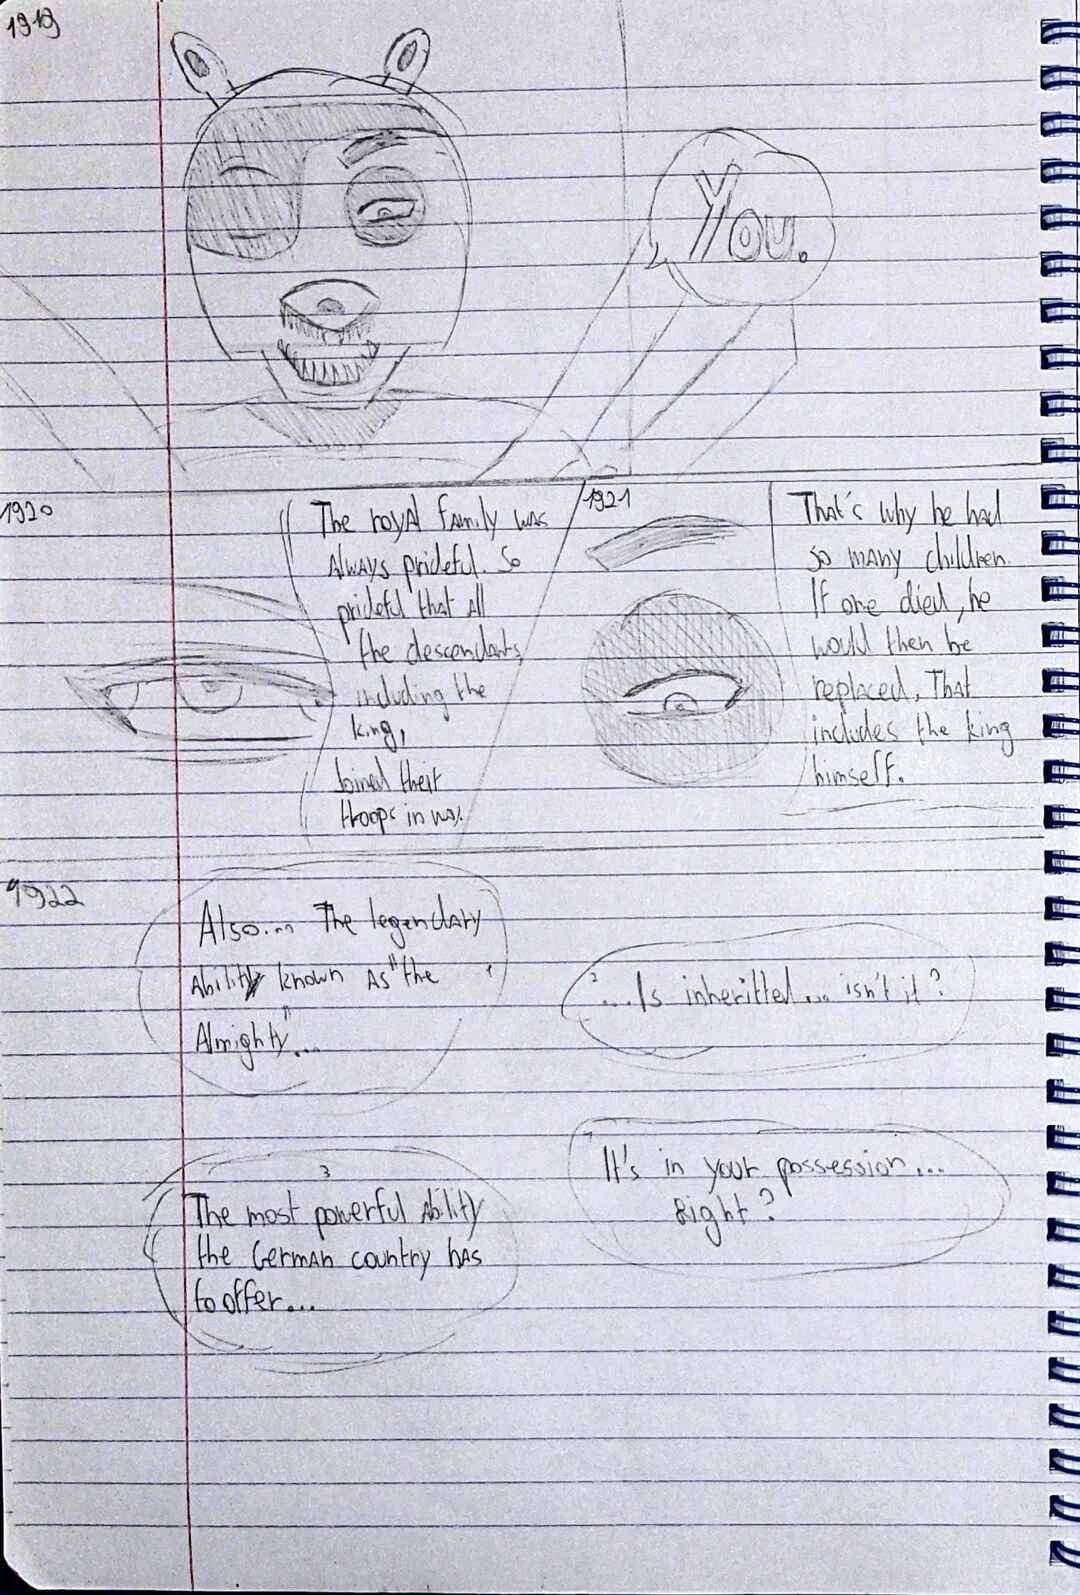 1919
You.
1920
The royal family was
always prideful. So
prideful that all
the descendants,
including the
king,
Joined their
troops in war.
1921
That's why he had
so many children.
If one died, he
would then be
replaced, That
includes the king
himself.
1922
1
Also... The legendary
Ability known as "the
Almighty"...
2
...Is inheritted... isn't it?
3
The most powerful ability
the German country has
to offer...
It's in your possession...
Right?